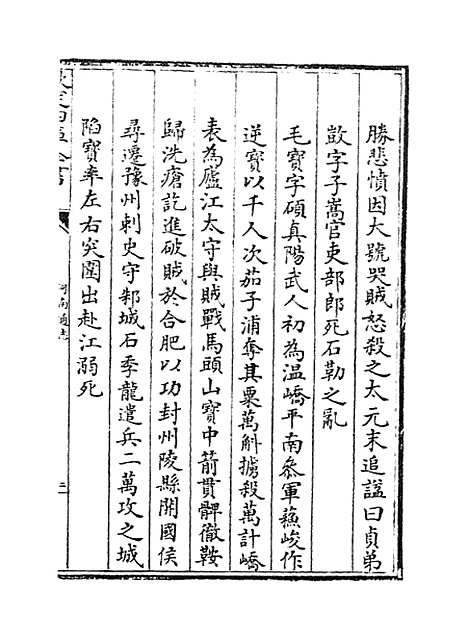 勝悲憤因大號哭賊怒殺之太元末追諡曰貞弟
敳字子嵩官吏部郎死石勒之亂
毛寶字碩真陽武人初為温嶠平南叅軍蘇峻作
逆寶以千人次茄子浦奪其粟萬斛擄殺萬計嶠
表為廬江太守與賊戰馬頭山寶中箭貫髀徹鞍
歸洗瘡訖進破賊於合肥以功封州陵縣開國侯
尋遷豫州刺史守邾城石季龍遣兵二萬攻之城
陷寶率左右突圍出赴江溺死
欽定四庫全書
河南通志
三